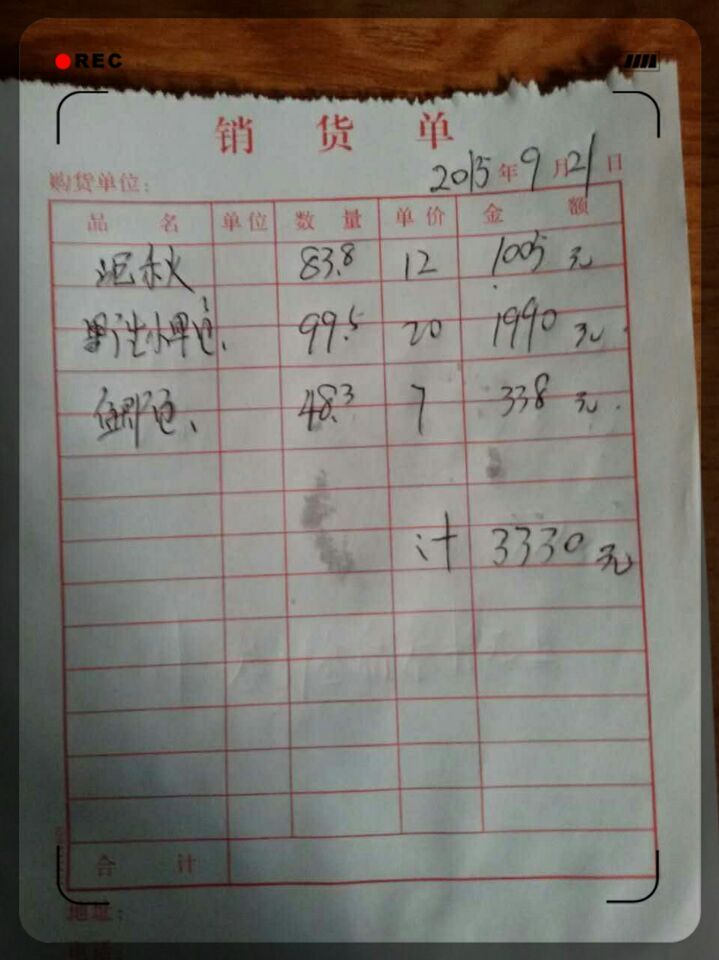 REC
销货单
购货单位: 2015年9月21日
品名 单位 数量 单价 金额
泥秋 83.8 12 1005元
99.5 20 1990元
48.3 7 338元
计 3330元
合计
地址:
电话: